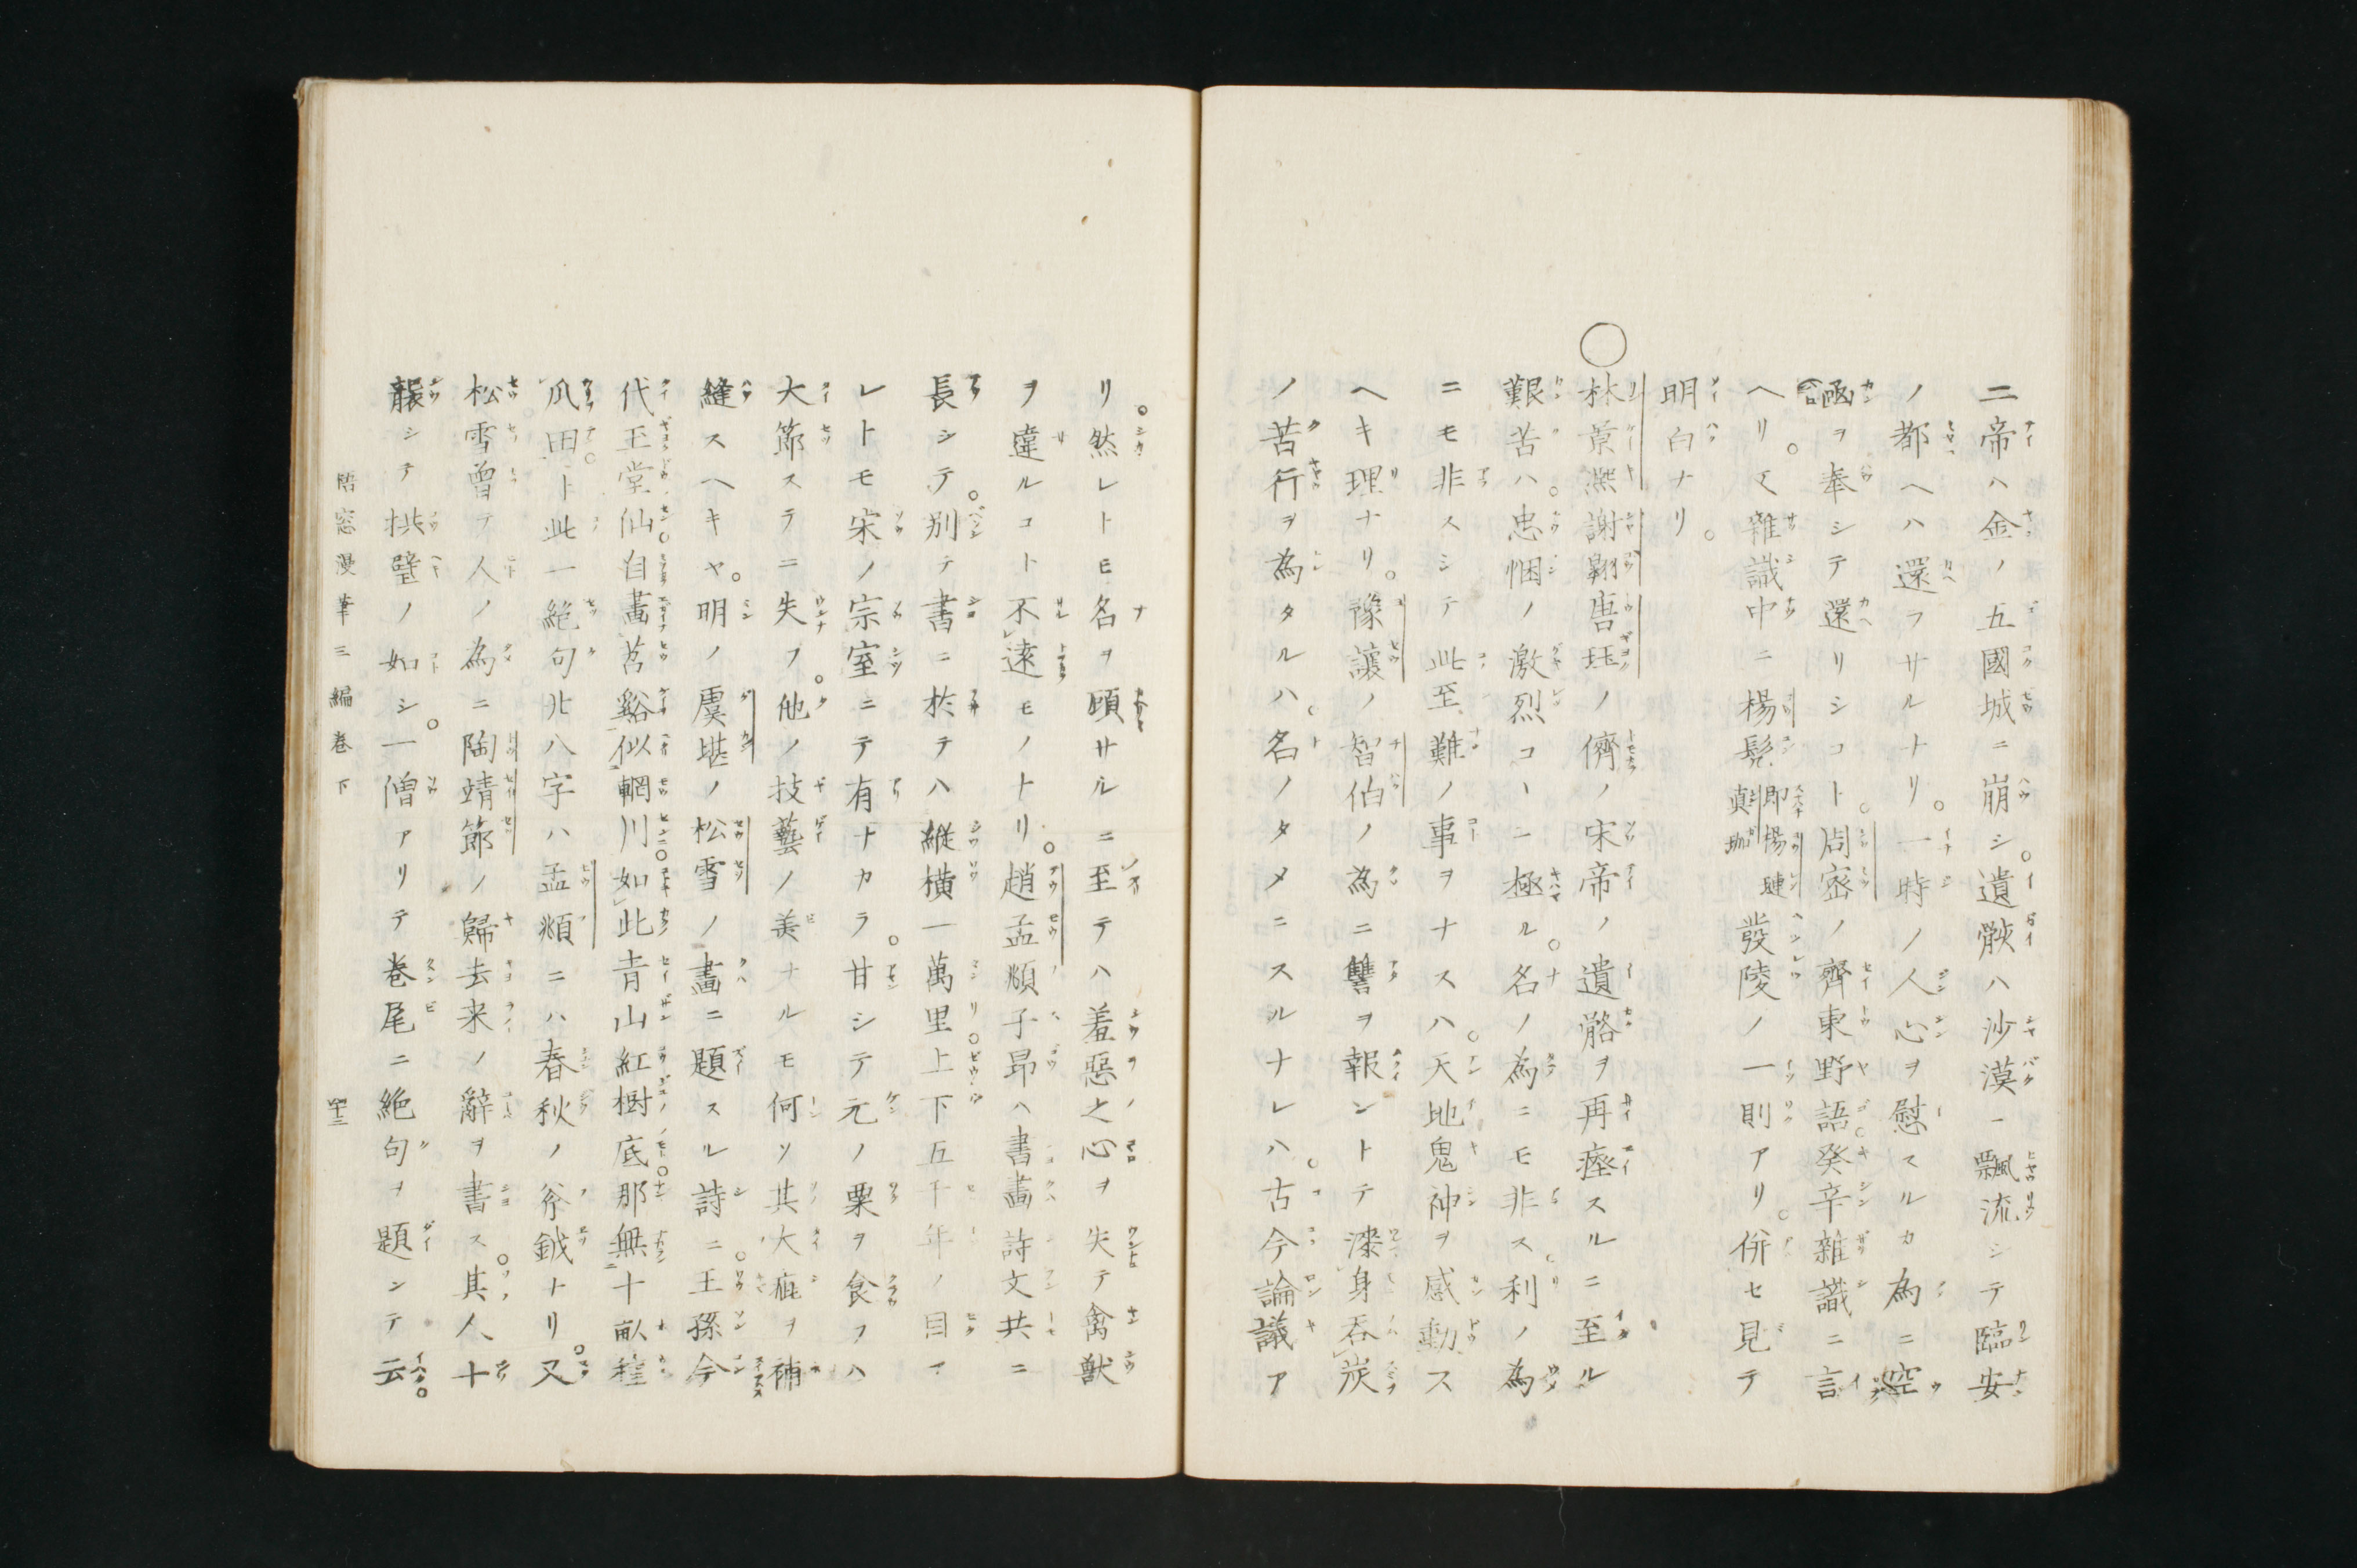 二帝ハ金ノ五國城ニ崩シ遺骸ハ沙漠ニ飄流シテ臨安
ノ都ヘハ還フサルナリ。一時ノ人心ヲ慰スルカ為ニ空
函ヲ奉シテ還リシコト。周密ノ齊東野語癸辛雜識ニ言
ヘリ。又雜識中ニ楊髡即楊璉真珈發陵ノ一則アリ併セ見テ
明白ナリ。
○林景熈謝翺唐珏ノ儕ノ宋帝ノ遺骼ヲ再瘞スルニ至ル
艱苦ハ。忠悃ノ激烈コヽニ極ル。名ノ為ニモ非ス。利ノ為
ニモ非スシテ此至難ノ事ヲナスハ。天地鬼神ヲ感動ス
ヘキ理ナリ。豫讓ノ智伯ノ為ニ讐ヲ報ントテ漆身呑炭
ノ苦行ヲ為タルハ。名ノタメニスルナレハ。古今論議ア
リ。然レトモ名ヲ頋サルニ至テハ羞惡之心ヲ失テ禽獣
ヲ違ルコト不遠モノナリ。趙孟頫子昂ハ書畵詩文共ニ
長シテ。別テ書ニ於テハ縦横一萬里上下五千年ノ目ア
レトモ宋ノ宗室ニテ有ナカラ。甘シテ元ノ粟ヲ食フハ
大節ステニ失フ。他ノ技藝ノ美ナルモ何ソ其大疵ヲ補
縫スヘキヤ。明ノ虞堪ノ松雪ノ畵ニ題スル詩ニ。王孫今
代玉堂仙。自畵苕谿似輞川。如此青山紅樹底。那無十畝種
瓜田。ト此一絶句廿八字ハ孟頫ニハ春秋ノ斧鉞ナリ。又
松雪曽テ人ノ為ニ陶靖節ノ歸去来ノ辭ヲ書ス。其人十
襲シテ拱璧ノ如シ。一僧アリテ巻尾ニ絶句ヲ題シテ云。
梧窓漫筆三編巻下 四十三